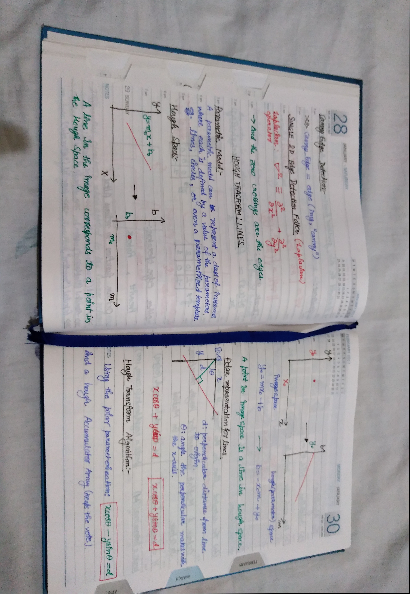 28
Image Edge Detection:
>> Image Edge = edge (img, "canny")
Simple 2D Edge Detection Filter (Laplacian)
Laplacian operator ∇² = ∂²/∂x² + ∂²/∂y²
→ And the zero crossings are the edges.
HOUGH TRANSFORM: LINES
Parametric Model:-
A parametric model can be represent a class of
where each is defined by a value of the parameter.
Eg. lines, circles, or even a parameterized template
Hough Space:
y
y=m₀x + b₀
x
b
b₀
m₀
m
A line in the Image corresponds to a point in
the Hough Space
30
y
y₀
x₀
x
b
m
Image space
Hough (parameter) space
y₀ = mx₀ + b
b = -x₀m + y₀
A point in Image space is a line in Hough space.
Polar representation for lines
d: perpendicular distance from line
to origin
θ: angle the perpendicular makes with
the x-axis.
xcosθ + ysinθ = d
xcosθ + ysinθ = d
Hough Transform Algorithm:-
→ Using the polar parameterization: xcosθ - ysinθ = d
And a Hough Accumulator Array (keeps the votes)